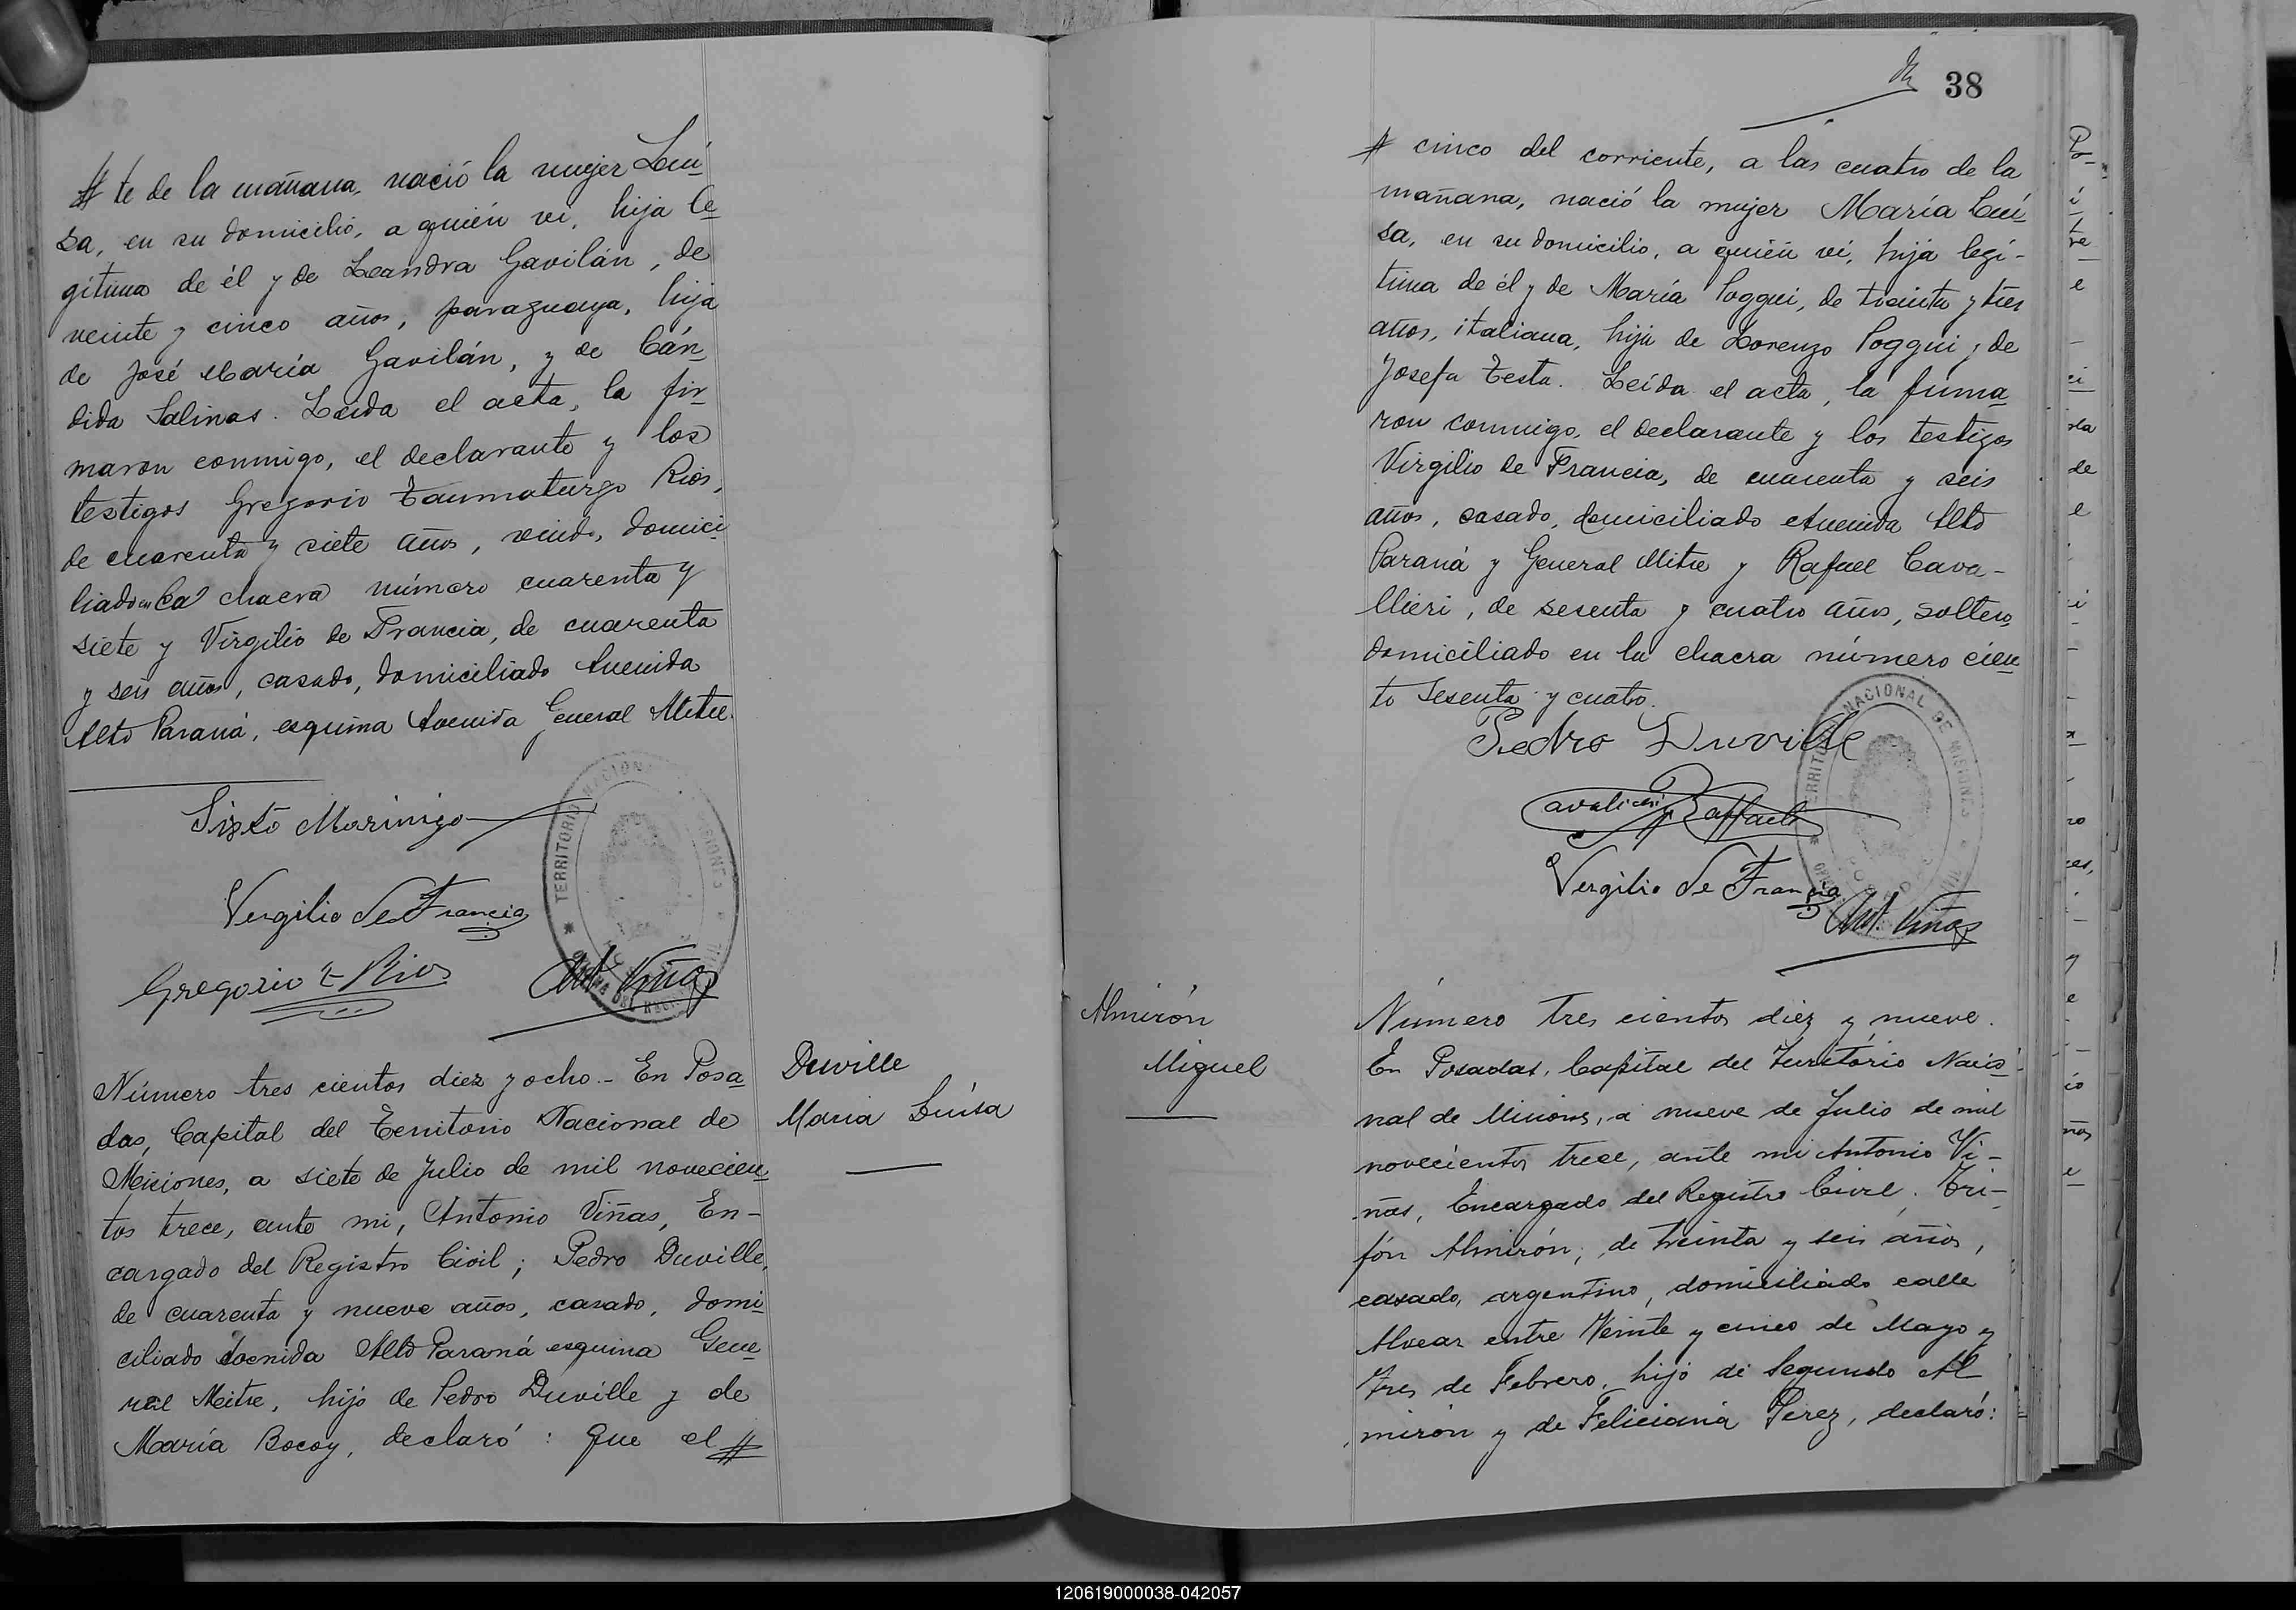 # te de la mañana, nació la mujer Lui
sa, en su domicilio, a quién vi, hija le
gitima de él y de Leandra Gavilán, de
veinte y cinco años, paraguaya, hija
de José María Gavilán, y de Cán
dida Salinas. Leida el acta, la fir
maron conmigo, el declarante y los
testigos Gregorio Taumaturgo Rios,
de cuarenta y siete años, viudo, domici
liado en la chacra número cuarenta y
siete y Virgilio de Francia, de cuarenta
y seis años, casado, domiciliado Avenida
Alto Paraná, esquina Avenida General Mitre.
Sixto Morinigo
Vergilio de Francia
Gregorio T Rios
Ant Viñas
TERRITORIO NACIONAL
Número tres cientos diez y ocho.- En Posa
das, Capital del Territorio Nacional de
Misiones, a siete de Julio de mil novecien
tos trece, ante mi, Antonio Viñas, En-
cargado del Registro Civil; Pedro Duville,
de cuarenta y nueve años, casado, domi
ciliado Avenida Alto Paraná esquina Gene
ral Mitre, hijo de Pedro Duville y de
María Bocoy, declaró: Que el #
Duville
Maria Luisa
38
# cinco del corriente, a las cuatro de la
mañana, nació la mujer María Lui
sa, en su domicilio, a quién vi, hija legi-
tima de él y de María Poggui, de treinta y tres
años, italiana, hija de Lorenzo Poggui y de
Josefa Testa. Leída el acta, la firma
ron conmigo, el declarante y los testigos
Virgilio de Francia, de cuarenta y seis
años, casado, domiciliado Avenida Alto
Paraná y General Mitre y Rafael Cava-
llieri, de sesenta y cuatro años, soltero,
domiciliado en la chacra número cien
to sesenta y cuatro.
Pedro Duville
Cavalieri Raffaele
Vergilio de Francia
Ant. Viñas
TERRITORIO NACIONAL DE MISIONES
Almirón
Miguel
Número tres cientos diez y nueve.
En Posadas, Capital del Territorio Nacio-
nal de Misiones, a nueve de Julio de mil
novecientos trece, ante mi Antonio Vi-
ñas, Encargado del Registro Civil. Tri-
fón Almirón, de treinta y seis años,
casado, argentino, domiciliado calle
Alvear entre Veinte y cinco de Mayo y
Tres de Febrero, hijo de Segundo Al
mirón y de Feliciana Perez, declaró:
120619000038-042057